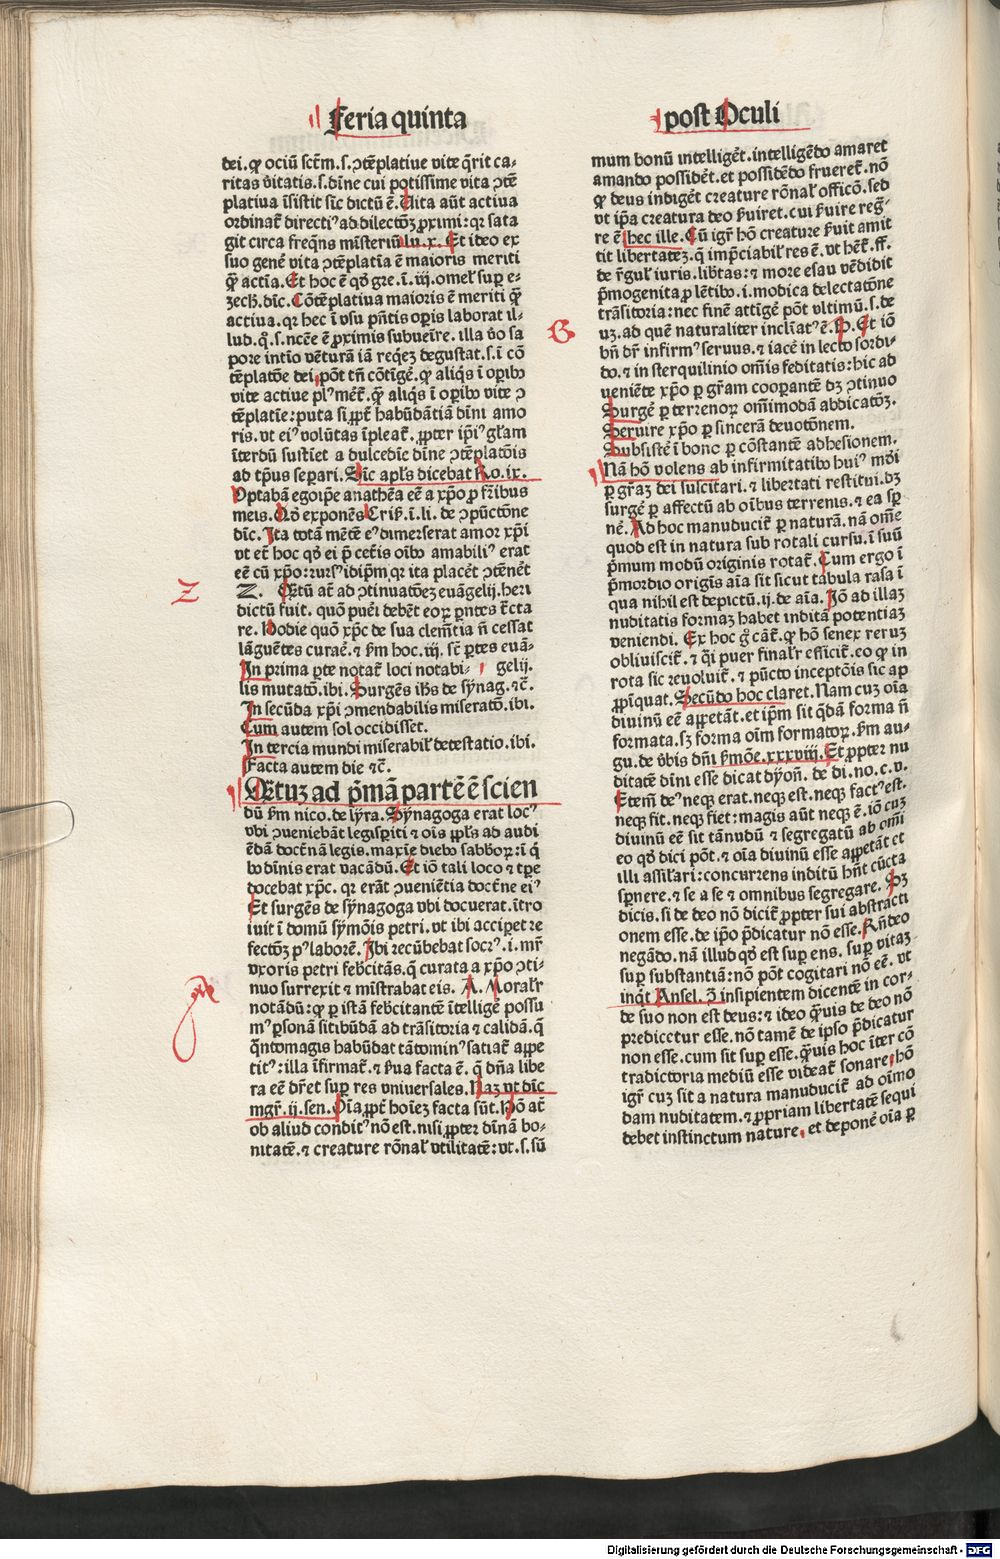 Feria quinta
post Oculi
dei. ꝙ ociū sctm̄. s. ↄtēplatiue vite q̄rit ca-
ritas v̄itatis. s. dīne cui potissime vita ↄtē
platiua īsistit sic dictū ē. Uita aūt actiua
ordinat̄ directiꝰ ad dilectōꝫ ꝓximi: qꝛ sata
git circa freq̄ns misteriū lu. x. Et ideo ex
suo genē vita ↄtēplatīa ē maioris meriti
ꝙ̄ actīa. Et hoc ē qđ gre. ī. iij. omel̕ suꝑ e-
zech. dic. Cōtēplatiua maioris ē meriti ꝙ̄
actiua. qꝛ hec ī vsu pn̄tis oꝑis laborat il-
lud. q̊. s. ncēe ē ꝓximis subueīre. illa v̄o sa
pore intīo vētura iā reqeꝫ degustat. s. ī cō
tēplatōe dei. pōt tn̄ cōtīgē. ꝙ aliqs ī oꝑibꝰ
vite actiue plꝰ mēt̄. ꝙ̄ aliqs ī oꝑibꝰ vite ↄ
tēplatīe: puta si ꝓpt̄ habūdātiā diuī amo
ris. vt eiꝰ volūtas īpleat̄. ꝓpter ipīꝰ glam
īterdū sustīet a dulcedīe dīne ↄtēplatōis
ad tp̄us seꝑari. Sic apls dicebat Ro. ix.
Optabā egoip̄e anathēa eē a xp̄o ꝓ fr̄ibus
meis. Qđ exponēs Cris. ī. li. de ↄpūctōne
dic. Ita totā mētē eꝰ dimerserat amor xp̄i
vt etī hoc qđ ei p̄ cet̄is oībꝰ amabiliꝰ erat
eē cū xp̄o: rursꝰ idip̄m qꝛ ita placēt ↄtēnēt
Z. Qrtū at̄ ad ↄtinuatōeꝫ euāgelij. heri
dictū fuit. quō pueri debēt eoꝝ ꝑntes tcta
re. Hodie quō xp̄c de sua clemētia nō cessat
lāguētes curae. ⁊ ẜm hoc. iij. sc̄ ꝑtes euā-
In prima ꝑte notat̄ loci notabi- gelij.
lis mutatō. ibi. Surgēs ihs de synag. ⁊c̄.
In secūda xp̄i ↄmendabilis miseratō. ibi.
Cum autem sol occidisset.
In tercia mundi miserabil̕ detestatio. ibi.
Facta autem die ⁊c̄.
Qrtuꝫ ad p̄mā partē ē scien
dū ẜm nico. de lyra. Synagoga erat locꝰ
vbi ↄueniebāt legisꝑiti ⁊ oīs ppl̕s ad audi
ēdā doctnā legis. maxīe diebꝰ sabboꝝ: ī qͥ
bꝰ dīnis erat vacādū. Et iō tali loco ⁊ tp̄e
docebat xp̄c. qꝛ erāt ↄueniētia doctne eiꝰ
Et surgēs de synagoga vbi docuerat. ītro
iuit ī domū symōis petri. vt ibi acciperet re
fectōꝫ pꝰ laborē. Ibi recūbebat socrꝰ. i. mr̄
vxoris petri febcitās. q̄ curata a xp̄o ↄti-
nuo surrexit ⁊ mīstrabat eis. A. Moral̕r
notādū: ꝙ ꝑ istā febcitantē ītelligē possu
mꝰ ꝑsonā sitibūdā ad trāsitoria ⁊ calidā. q̄
q̄ntomagis habūdat tātominꝰ satiat̄ appe
titꝰ: illa īfirmat̄ ⁊ ẜua facta ē. q̄ dn̄a libe
ra eē dr̄et suꝑ res vniuersales. Naꝫ vt dic
mgr̄. ij. sen. Oīa ꝓpt̄ hoīeꝫ facta sūt. Hō at̄
ob aliud conditꝰ nō est. nisi ꝓpter dīnā bo-
nitatē. ⁊ creature rōnal̕ vtilitatē: vt. s. sū
mum bonū intelligēt. intelligēdo amaret
amando possidēt. et possidēdo frueret̄. nō
ꝙ deus indigēt creature rōnal̕ officō. sed
vt ip̄a creatura deo ẜuiret. cui ẜuire reḡ-
re ē hec ille. Cū igr̄ hō creature ẜuit amit
tit libertateꝫ. q̄ imp̄ciabil̕ res ē. vt hēt̄. ff.
de rgul̕ iuris. lib̄tas: ⁊ more esau vēdidit
p̄mogenita ꝓ lētibꝰ. i. modica delectatōne
trāsitoria: nec finē attīgē pōt vltimū. s. de
uꝫ. ad quē naturaliter inclīatꝰ ē. B. Et iō
bn̄ dr̄ infirmꝰ seruus. ⁊ iacē in lecto sordi-
do. ⁊ in sterquilinio om̄is feditatis: hic ad
veniēte xp̄o ꝑ gram cooꝑantē dꝫ ↄtinuo
Surgē ꝑ terrenoꝝ om̄imodā abdicatōꝫ.
Seruire xp̄o ꝑ sincerā deuotōnem.
Subsistē ī bono ꝑ cōstantē adhesionem.
Nā hō volens ab infirmitatibꝰ huiꝰ mūdi
ꝑ graꝫ dei suscitari. ⁊ libertati restitui. dꝫ
surgē ꝑ affectū ab oībus terrenis. ⁊ ea sꝑ
nē. Ad hoc manuducit̄ ꝑ naturā. nā om̄e
quod est in natura sub rotali cursu. ī suū
p̄mum modū originis rotat̄. Cum ergo ī
p̄mordio origīs aīa sit sicut tabula rasa ī
qua nihil est depictū. ij. de aīa. Iō ad illaꝫ
nuditatis formaꝫ habet inditā potentiaꝫ
veniendi. Ex hoc g̊ cāt̄. ꝙ hō senex reruꝫ
obliuiscit̄. ⁊ qͣi puer final̕r efficit̄. eo ꝙ in
rota sic reuoluit̄. ⁊ pūcto inceptōis sic ap
ꝓpīquat. Secūdo hoc claret. Nam cuꝫ oīa
diuinū eē appetāt. et ip̄m sit q̄dā forma nō
formata. sꝫ forma oīm formatoꝝ. ẜm au-
gu. de v̄bis dn̄i ẜmōe. xxxviij. Et ꝓpter nu
ditatē diuī esse dicat dyon̄. de di. no. c. v.
Etem̄ deꝰ neqꝫ erat. neqꝫ est. neqꝫ factꝰ est.
neqꝫ fit. neqꝫ fiet: magis aūt neqꝫ ē. iō cuꝫ
diuinū eē sit tānudū ⁊ segregatū ab om̄i
eo qđ dici pōt. ⁊ oīa diuinū esse appetāt et
illi assil̕ari: concurrens inditū hn̄t cūcta
sꝑnere. ⁊ se a se ⁊ omnibus segregare. Sꝫ
dicis. si de deo nō dicit̄ ꝓpter sui abstracti
onem esse. de ip̄o p̄dicatur nō esse. Rn̄deo
negādo. nā illud qđ est suꝑ ens. suꝑ vitaꝫ
suꝑ substantiā: nō pōt cogitari nō eē. vt
inqͥt Ansel. ꝯ insipientem dicentē in cor-
de suo non est deus: ⁊ ideo q̄uis de deo nō
predicetur esse. nō tamē de ipso p̄dicatur
non esse. cum sit suꝑ esse. q̄uis hoc īter cō
tradictoria mediū esse videat̄ sonare. hō
igr̄ cuꝫ sit a natura manuducit̄ ad oīmo
dam nuditatem. ⁊ ꝓpriam libertatē sequi
debet instinctum nature. et deponē oīa ꝑ
Z
B
Digitalisierung gefördert durch die Deutsche Forschungsgemeinschaft - DFG